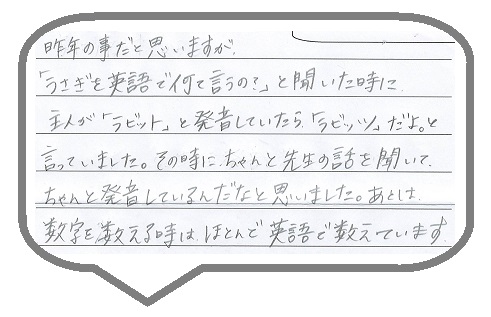 昨年の事だと思いますが、
「うさぎを英語で何て言うの?」と聞いた時に、
主人が「ラビット」と発音していたら、「ラビッツ」だよ。と
言っていました。その時に、ちゃんと先生の話を聞いて、
ちゃんと発音しているんだなと思いました。あとは、
数字を数える時は、ほとんど英語で数えています。